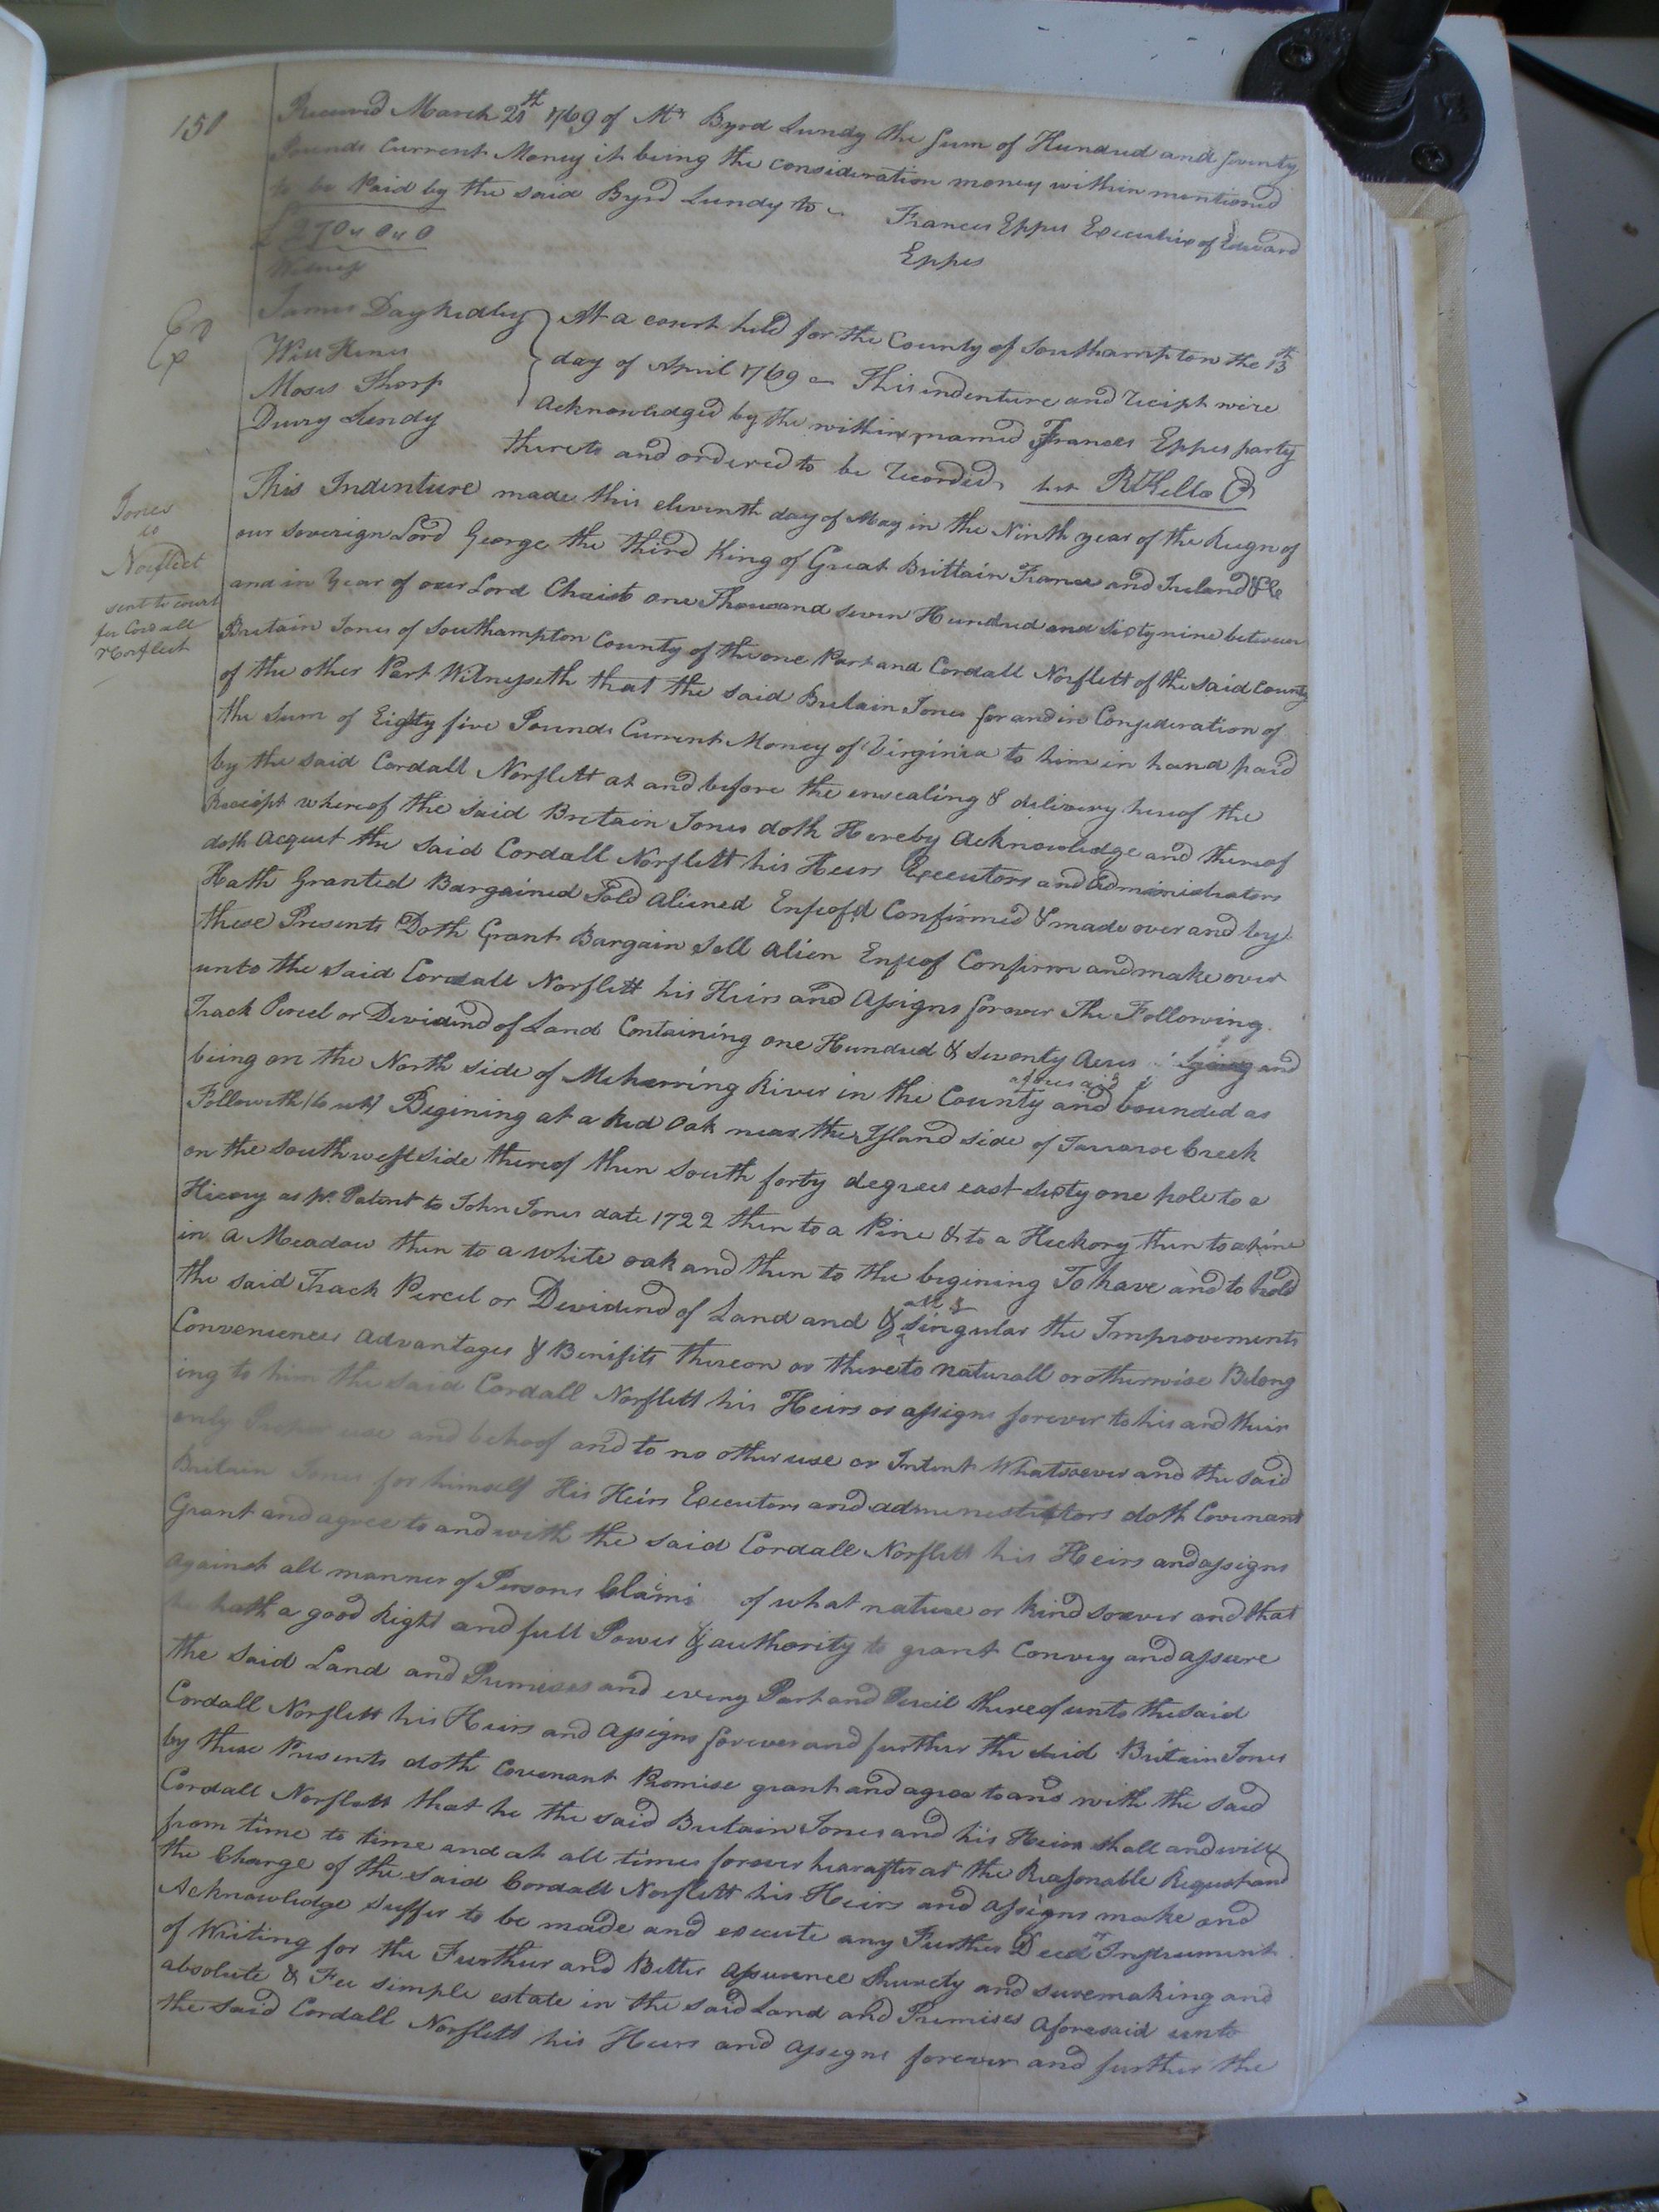 150
Received March 28th 1769 of Mr Byrd Lundy the sum of Hundred and seventy
Pounds Current Money it being the consideration money within mentioned
to be Paid by the said Byrd Lundy to
Frances Eppes Executrix of Edward
Eppes
£270 " 0 " 0
Witness
James Day Ridley
Will Hines
Moses Thorp
Drury Lundy
Exd
At a court held for the County of Southampton the 13th
day of April 1769 This indenture and receipt were
Acknowledged by the within named Frances Eppes party
thereto and ordered to be recorded
Jones
to
Norflect
sent to court
for Cordall
Norflect
This Indenture made this eleventh day of May in the Ninth year of the Reign of
our soverign Lord George the third King of Great Brittain France and Ireland &c
and in Year of our Lord Christ one Thousand seven Hundred and sixty nine between
Britain Jones of Southampton County of the one Part and Cordall Norflett of the said County
of the other Part Witnesseth that the said Britain Jones for and in Consideration of
the sum of Eighty five Pounds Current Money of Virginia to him in hand paid
by the said Cordall Norflett at and before the ensealing & delivery hereof the
Receipt whereof the said Britain Jones doth Hereby Acknowledge and thereof
doth acquet the said Cordall Norflett his Heirs Executors and Administrators
Hath Granted Bargained Sold aliened Enfeofd Confirmed & made over and by
these Presents Doth Grant Bargain Sell alien Enfeof Confirm and make over
unto the said Cordall Norflett his Heirs and Assigns forever The Following
Track Percel or Devidend of Land Containing one Hundred & Seventy Acres lying and
being on the North side of Meherring River in the County aforesaid and bounded as
Followeth (to wit) Begining at a Red Oak near the Island side of Tararoe Creek
on the south west side thereof then south forty degrees east sixty one pole to a
Hicory as pr. Patent to John Jones date 1722 then to a Pine & to a Hickory then to a pine
in a Meadow then to a white oak and then to the begining To have and to hold
the said Track Percel or Devidend of Land and & all & singular the Improvements
Conveniences advantages & Benifits thereon or thereto naturall or otherwise Belong
ing to him the said Cordall Norflett his Heirs or assigns forever to his and their
only Proper use and behoof and to no other use or Intent Whatsoever and the said
Britain Jones for himself His Heirs Executors and administrators doth Covenant
Grant and agree to and with the said Cordall Norflett his Heirs and assigns
against all manner of Persons Claims of what nature or kind soever and that
he hath a good Right and full Power & authority to grant Convey and assure
the said Land and Premises and every Part and Percil thereof unto the said
Cordall Norflett his Heirs and Assigns forever and further the said Britain Jones
by these Presents doth Covenant Promise grant and agree to and with the said
Cordall Norflett that he the said Britain Jones and his Heirs shall and will
from time to time and at all times forever hereafter at the Reasonable Request and
the Charge of the said Cordall Norflett his Heirs and assigns make and
Acknowledge suffer to be made and execute any Further Deed or Instrument
of Writing for the Further and Better assurance shurety and suremaking and
absolute & Fee simple estate in the said Land and Premises aforesaid unto
the said Cordall Norflett his Heirs and assigns forever and further the